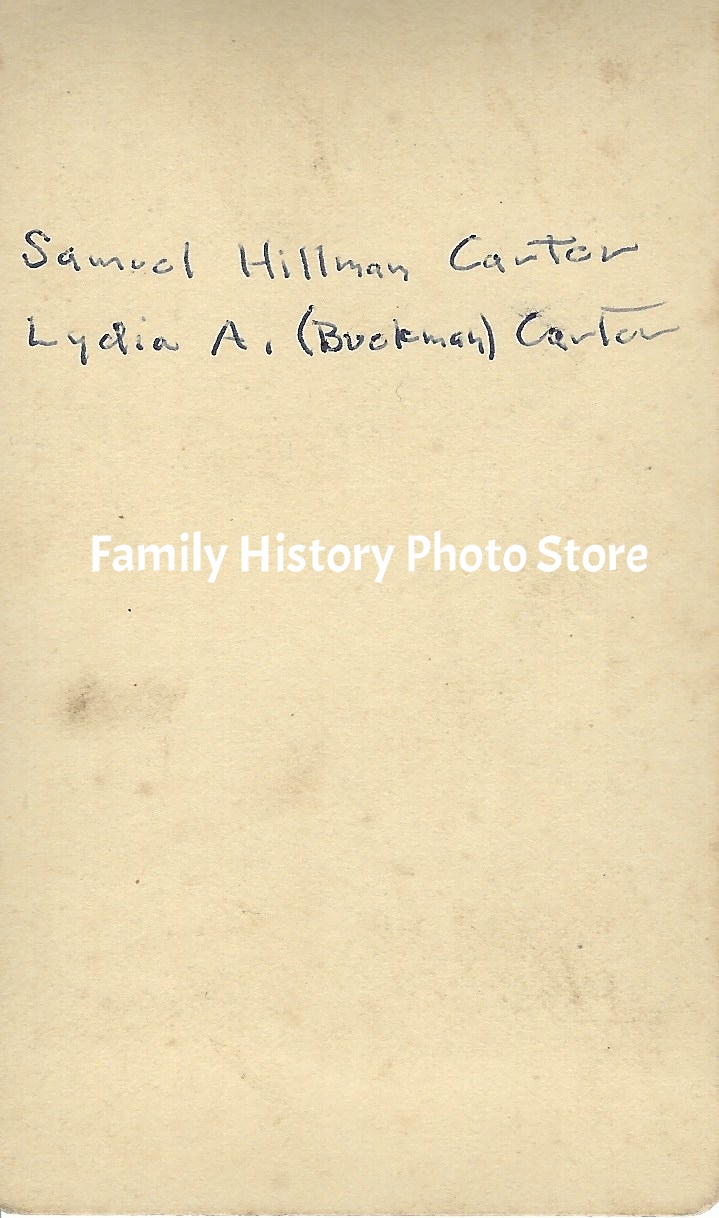 Samuel Hillman Carter
Lydia A. (Buckman) Carter
Family History Photo Store